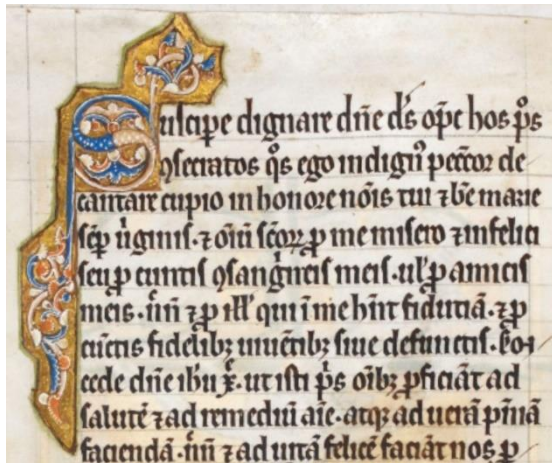 Suscipe dignare dñe ds̄ op̄c hos p̄s
ꝯsecratos q̄s ego indign⁹ peccōr de
cantare cupio in honore nōis tui ⁊ bē marie
sēp ũginis · ⁊ oīũ scōꝝ ꝓ me misero ⁊ infelici
seu ꝓ cunctis ꝯsanḡineis meis · uł ꝓ amicis
meis · ⁊ ꝓ ill̄ qui ī me hñt fidutiā · ⁊ ꝓ
cūctis fidelibꝫ uiuētibꝫ siue defunctis ·
cede dñe ih̄u x̄ · ut isti p̄s oībꝫ ꝓficiāt ad
salutē ⁊ ad remediū aīe · atqꝫ ad uerā pīnā
faciendā · ⁊ ad uitā felicē faciāt nos ꝑ